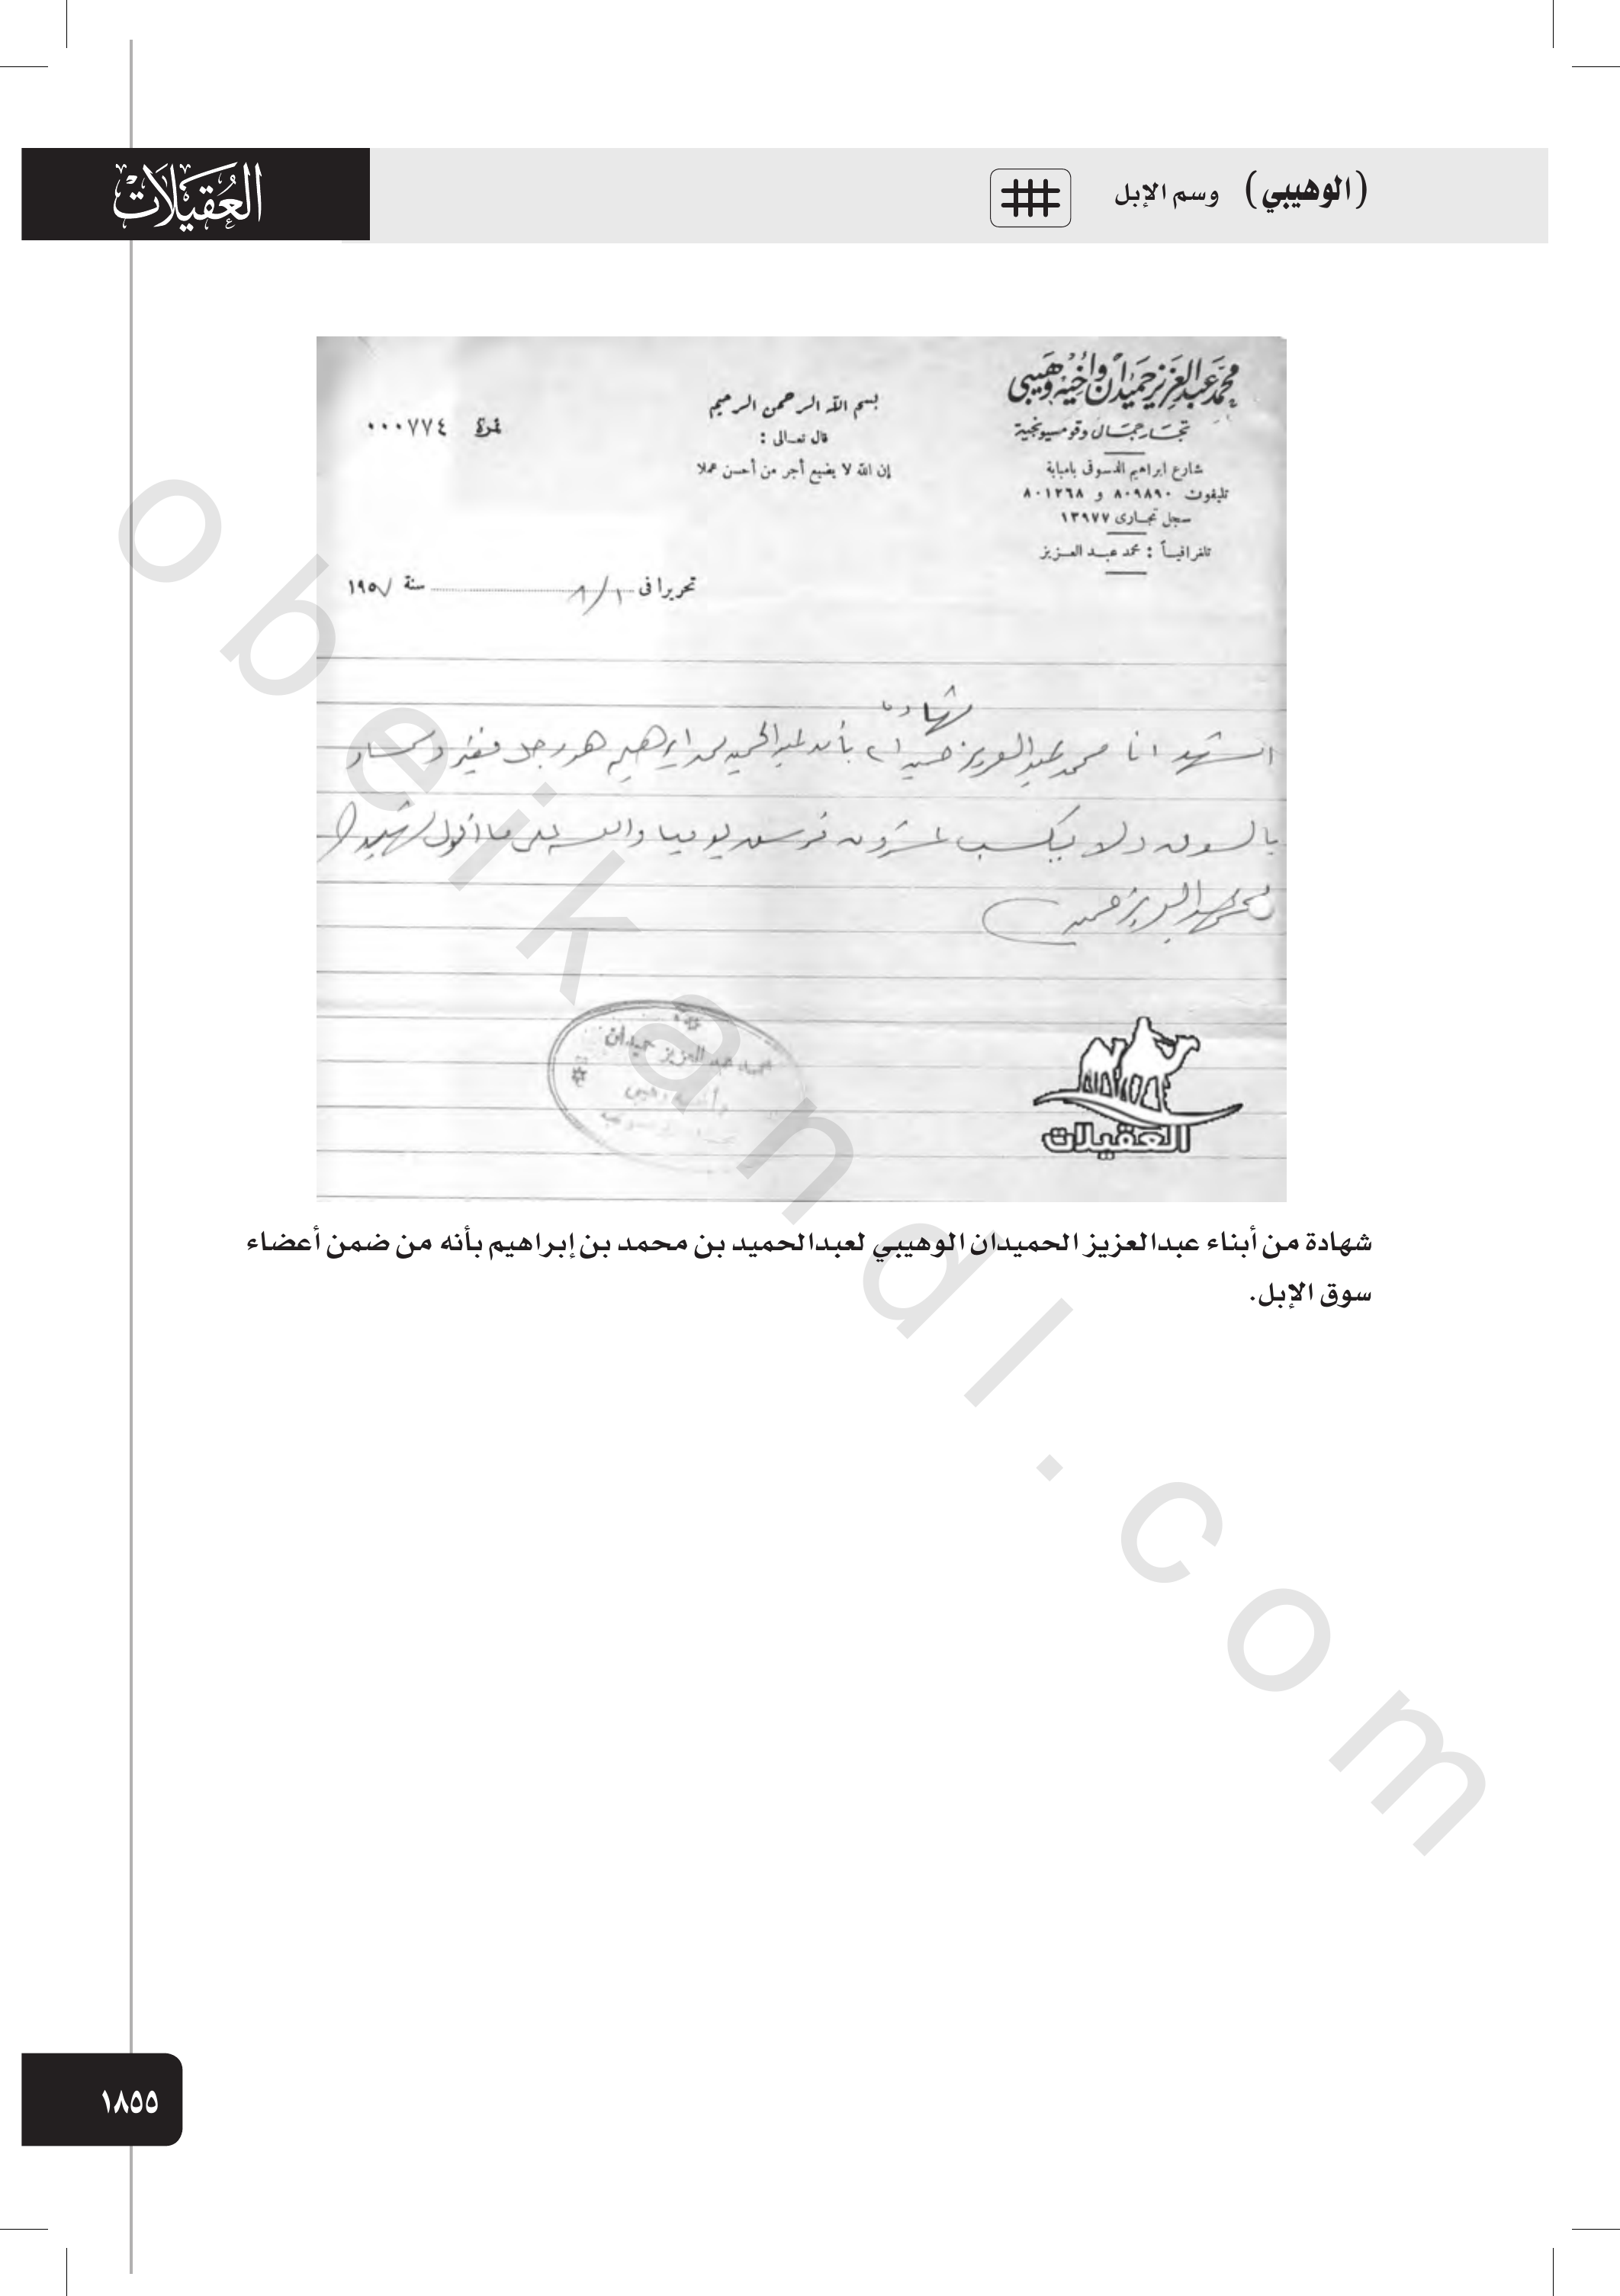 (الوهيبي) وسم الإبل
العقيلات
محمد عبد العزيز حميدان وأخيه وهيبي
تجار جمال وقومسيونجية
شارع ابراهيم الدسوقى بامبابة
تليفون ٨٠٩٨٩٠ و ٨٠١٢٦٨
سجل تجارى ١٣٩٧٧
تلغرافيا : محمد عبد العزيز
بسم الله الرحمن الرحيم
قال تعالى :
إن الله لا يضيع أجر من أحسن عملا
نمرة ٠٠٠٧٧٤
تحريرا فى ١/٨ سنة ١٩٥٧
شهادة
اشهد انا محمد عبد العزيز حميدان بأن عبد الحميد محمد ابراهيم هو رجل فقير
بالسوق ولا يكسب عشرون قرس يوميا والله على ما اقول شهيد
محمد عبد العزيز حميدان
محمد عبد العزيز حميدان
وأخيه وهيبى
العقيلات
شهادة من أبناء عبدالعزيز الحميدان الوهيبي لعبدالحميد بن محمد بن إبراهيم بأنه من ضمن أعضاء
سوق الإبل.
١٨٥٥
obeikandl.com